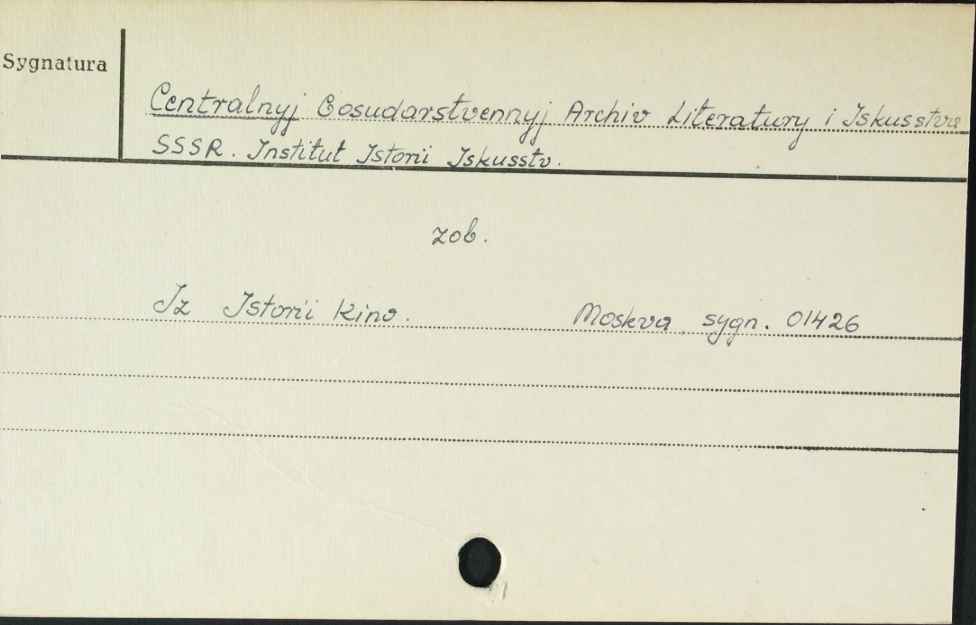 Sygnatura
Centralnyj Gosudarstvennyj Archiv Literatury i Iskusstva
SSSR. Institut Istorii Iskusstv.
zob.
Iz Istorii Kino. Moskva, sygn. 01426